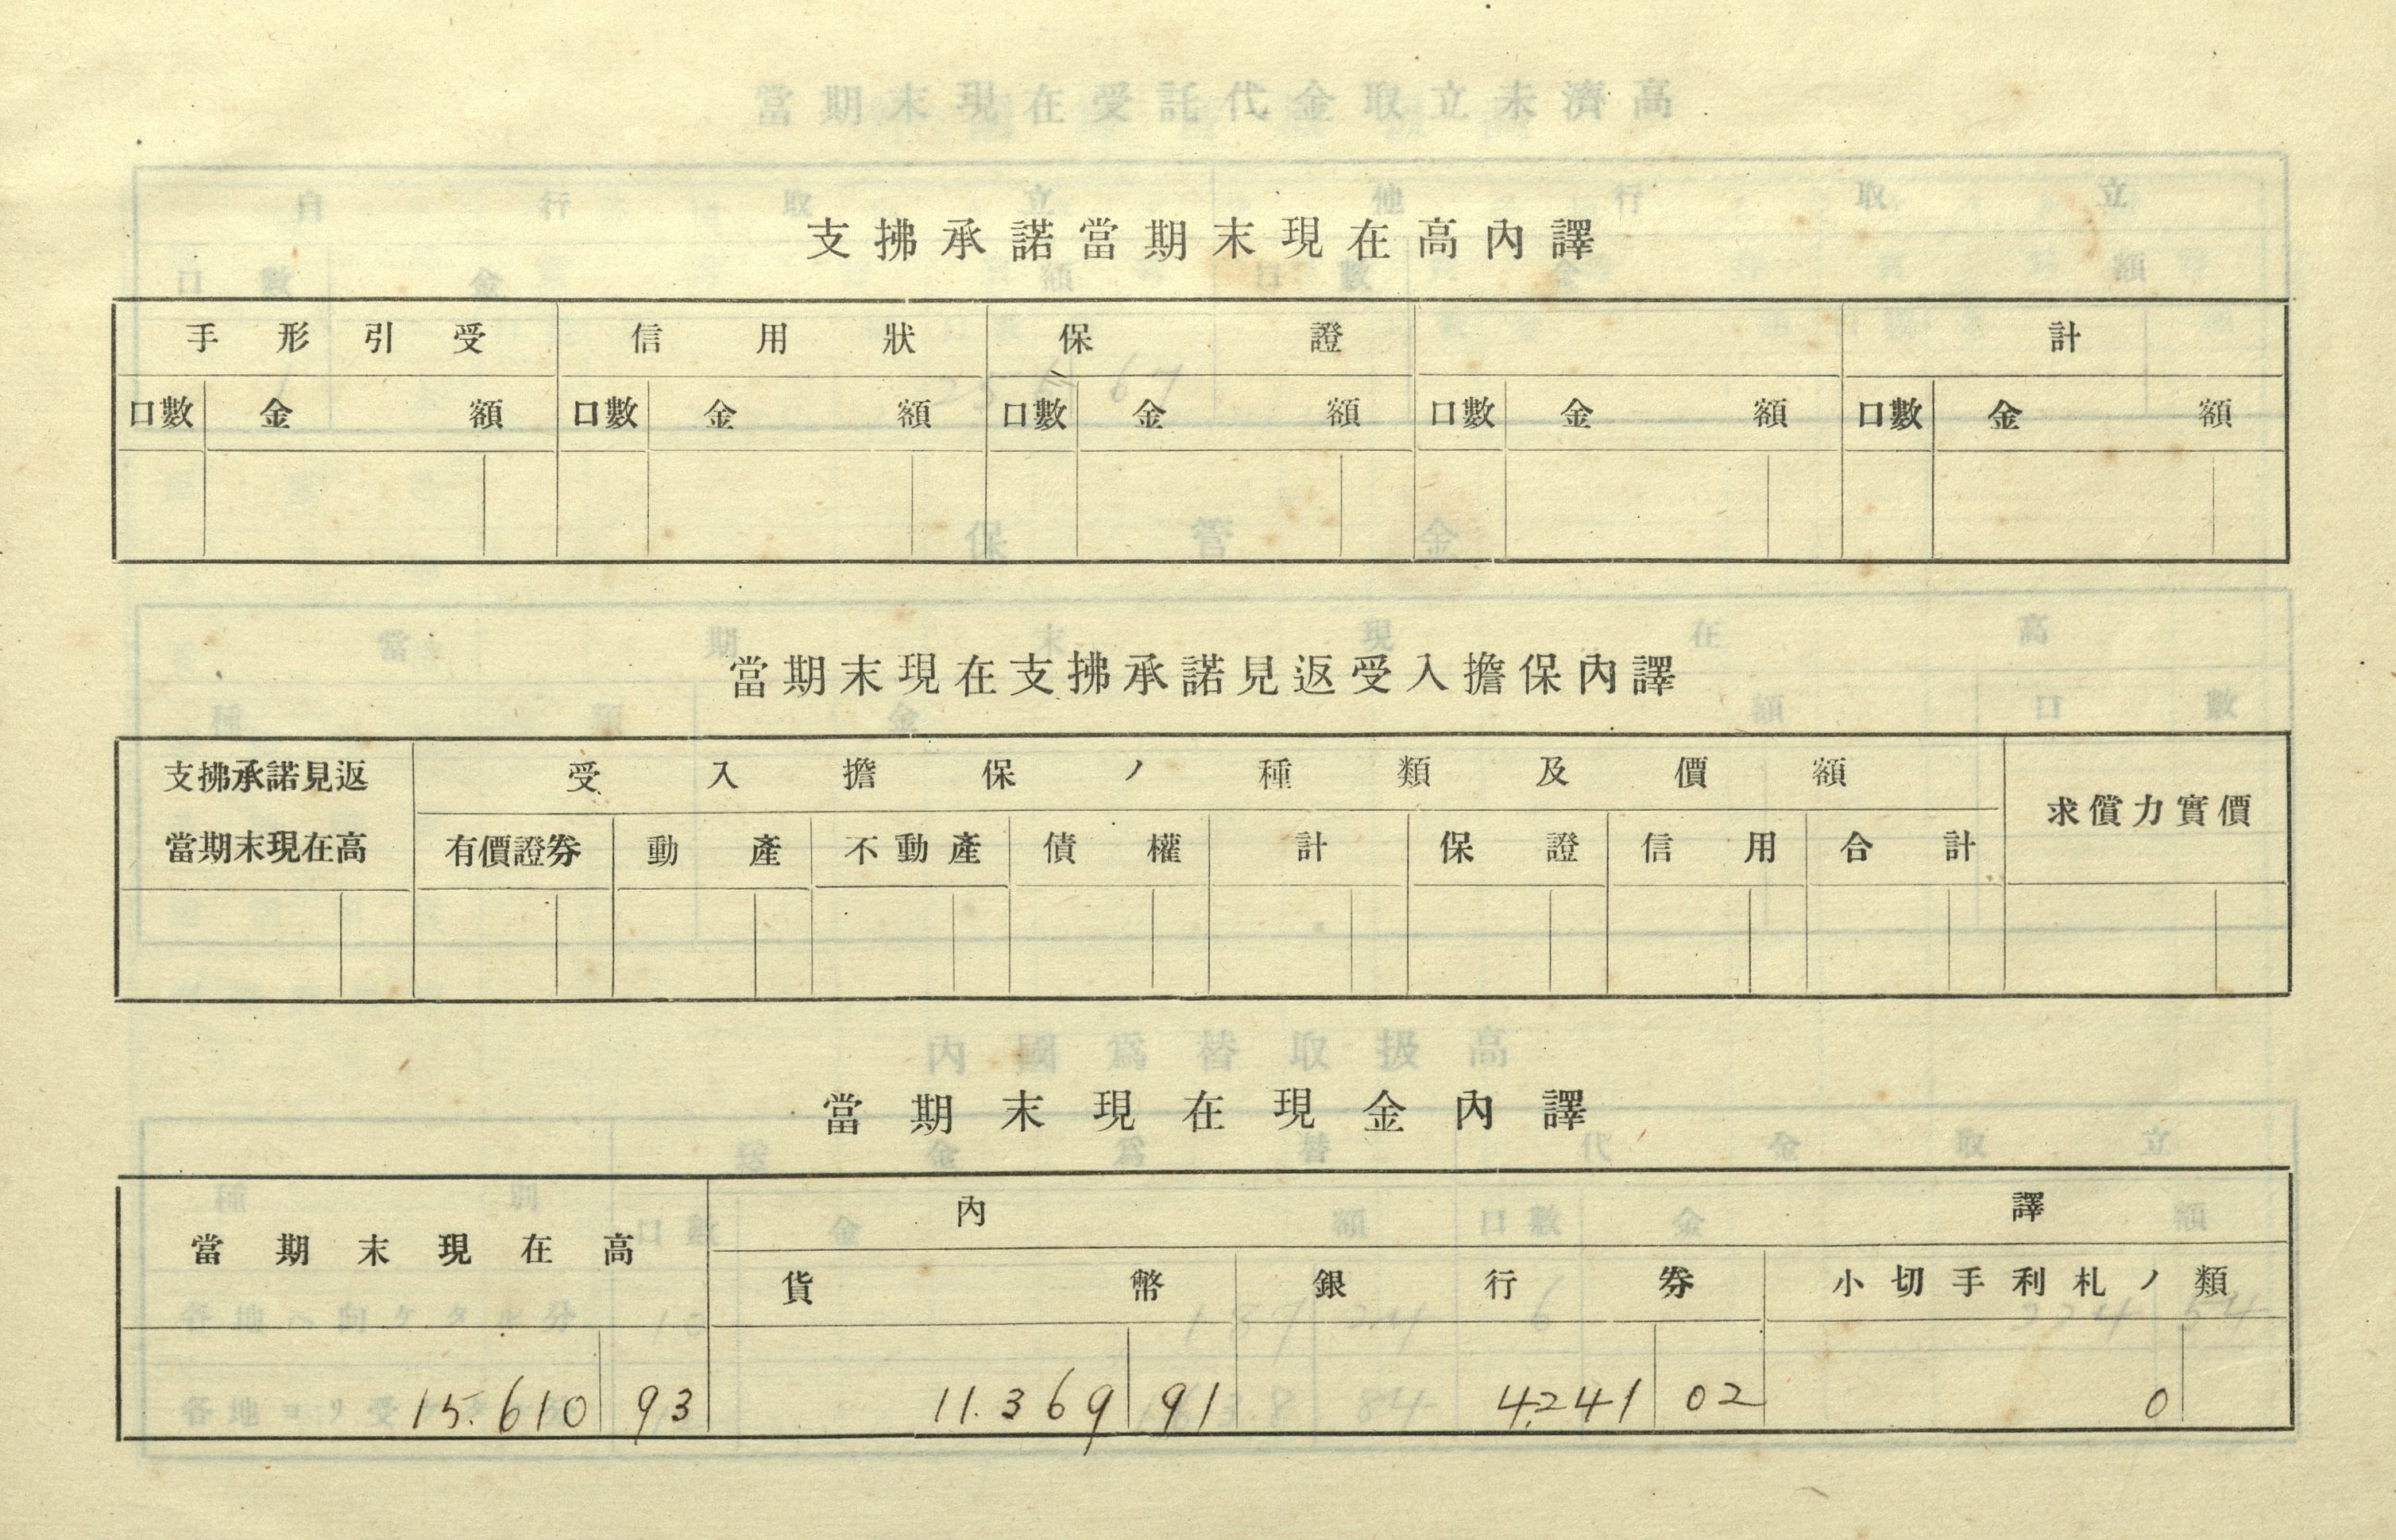 支拂承諾當期末現在高內譯
手形引受 信用狀 保證 計
口數 金額 口數 金額 口數 金額 口數 金額 口數 金額
當期末現在支拂承諾見返受入擔保內譯
支拂承諾見返當期末現在高 受入擔保ノ種類及價額 求償力實價
有價證券 動產 不動產 債權 計 保證 信用 合計
當期末現在現金內譯
當期末現在高 內譯
貨幣 銀行券 小切手利札ノ類
15.610 93 11.369 91 4.241 02 0